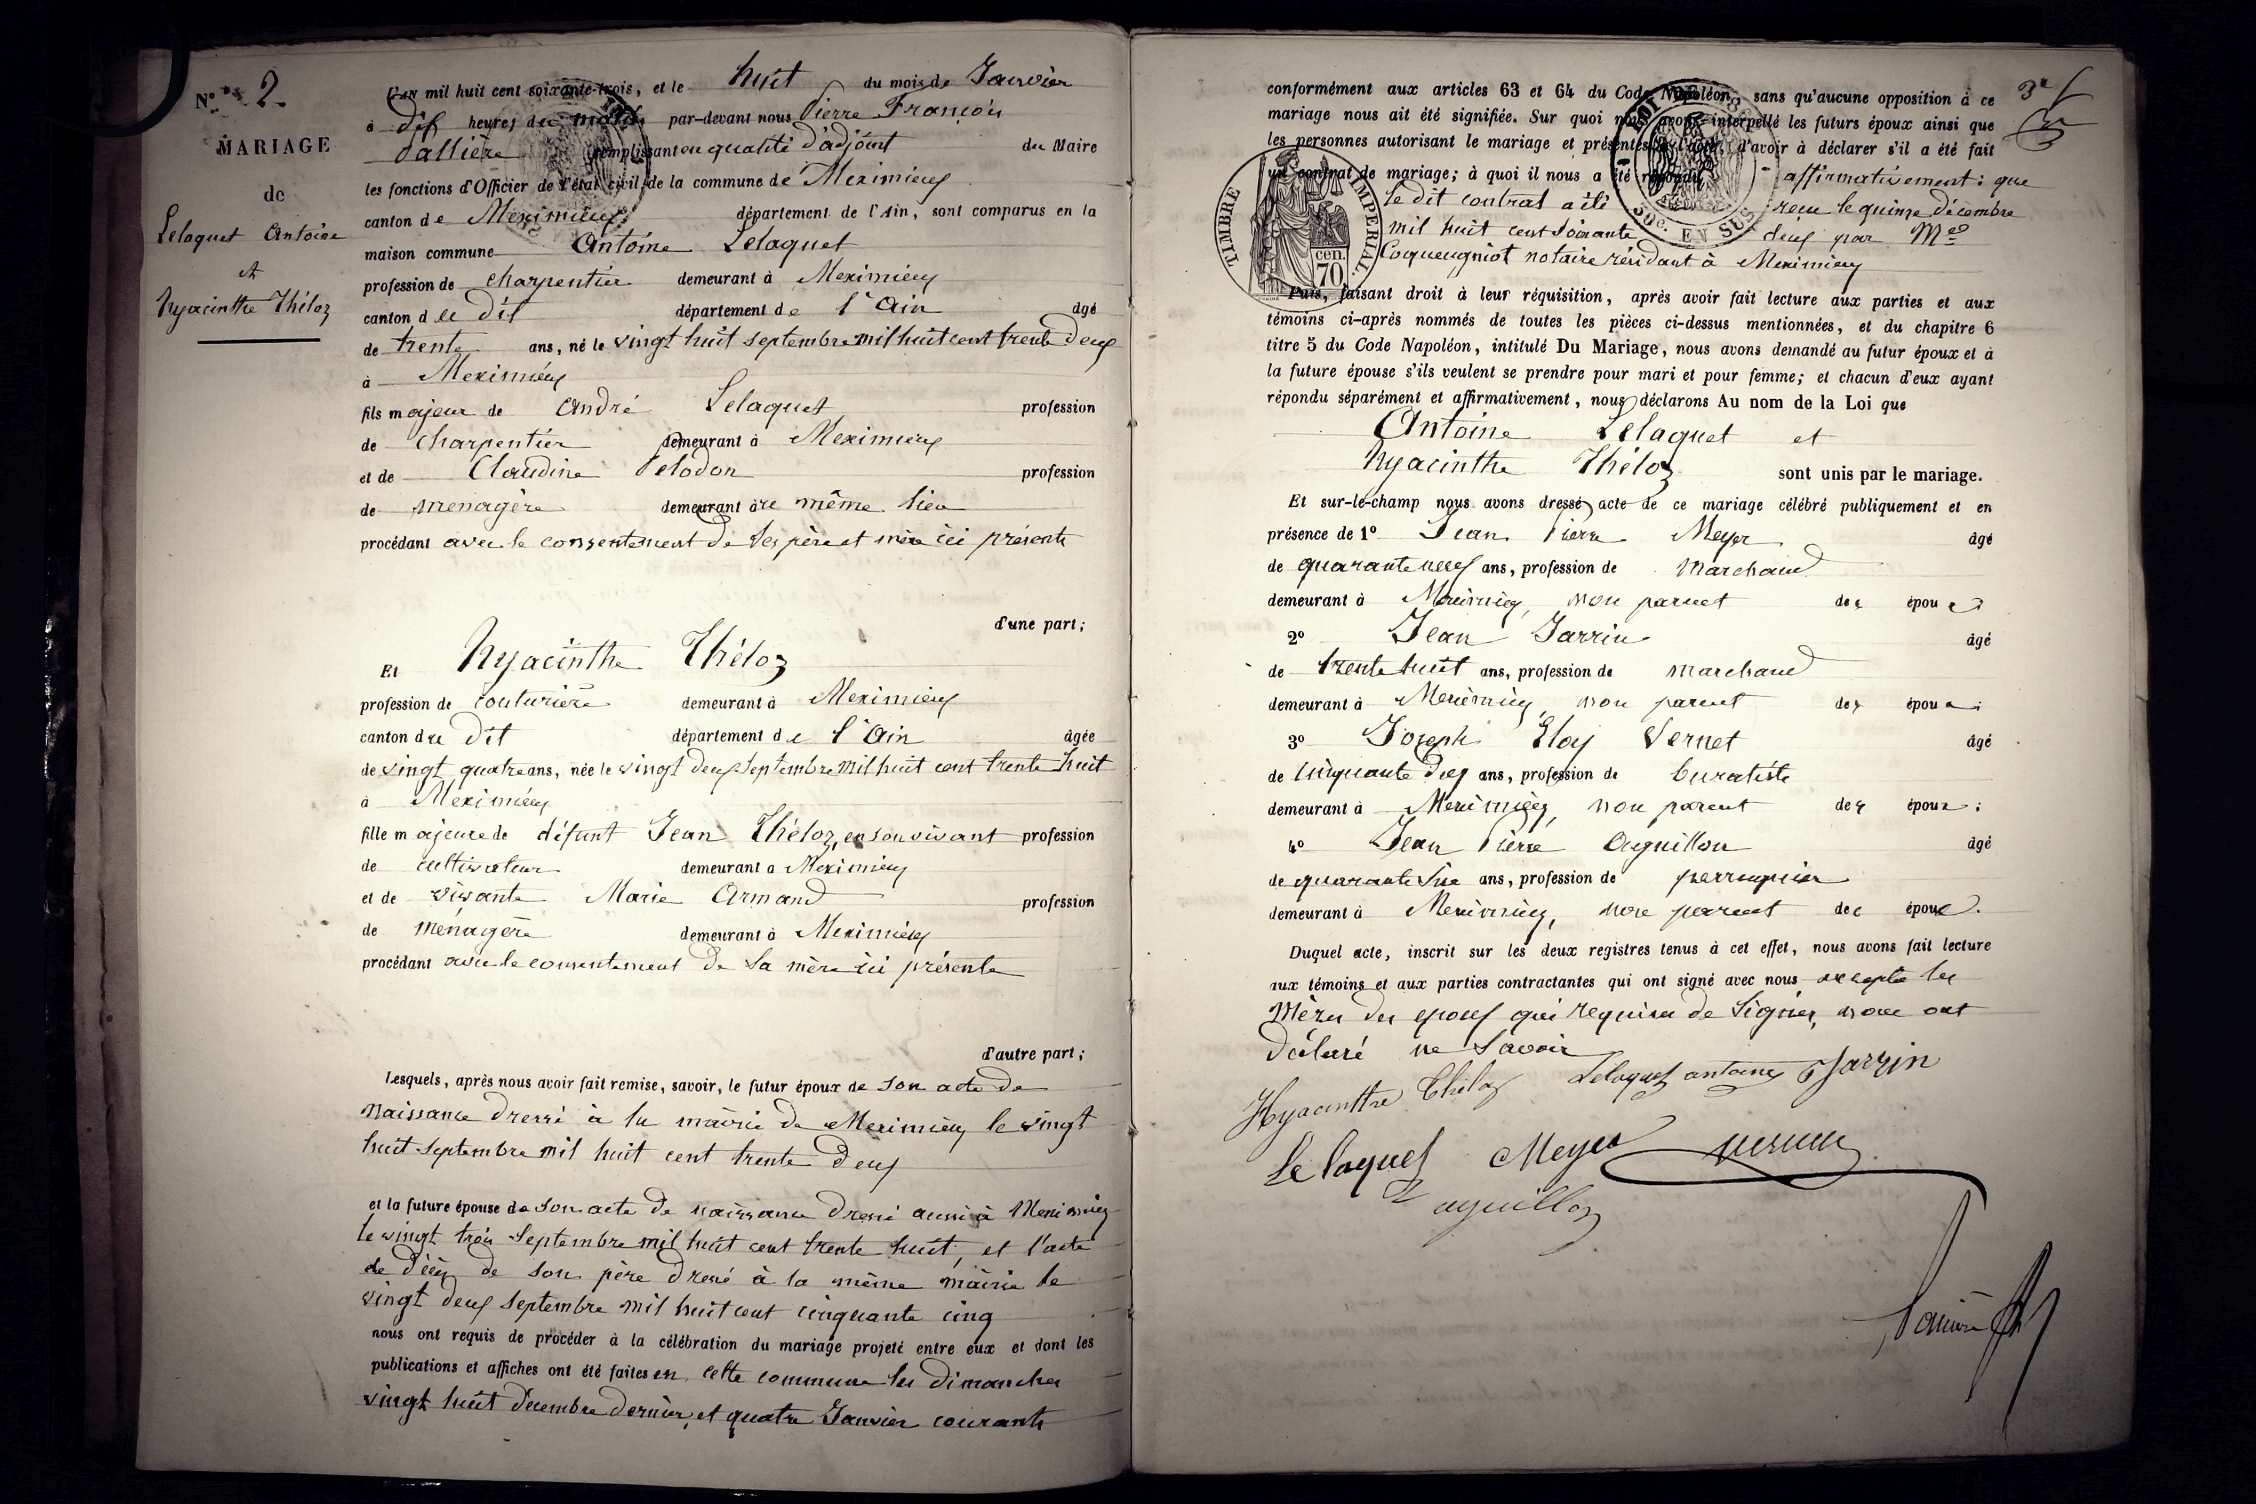 N° 2
MARIAGE
de
Lelaquet Antoine
et
Hyacinthe Théloz
L'AN mil huit cent soixante-trois, et le huit du mois de Janvier
à dix heures du matin par-devant nous Pierre François
remplissant en qualité d'adjoint du Maire
les fonctions d'Officier de l'état civil de la commune de Meximieux
canton de Meximieux département de l'Ain, sont comparus en la
maison commune Antoine Lelaquet
profession de charpentier demeurant à Meximieux
canton du dit département de l'Ain âgé
de trente ans, né le vingt huit septembre mil huit cent trente deux
à Meximieux
fils majeur de André Lelaquet profession
de charpentier demeurant à Meximieux
et de Claudine Pelodon profession
de ménagère demeurant au même lieu
procédant avec le consentement de ses père et mère ici présents
d'une part;
Et Hyacinthe Théloz
profession de couturière demeurant à Meximieux
canton du dit département de l'Ain âgée
de vingt quatre ans, née le vingt deux septembre mil huit cent trente huit
à Meximieux
fille majeure de défunt Jean Théloz, en son vivant profession
de cultivateur demeurant à Meximieux
et de vivante Marie Armand profession
de ménagère demeurant à Meximieux
procédant avec le consentement de sa mère ici présente
d'autre part;
Lesquels, après nous avoir fait remise, savoir, le futur époux de son acte de
naissance dressé à la mairie de Meximieux le vingt
huit septembre mil huit cent trente deux
et la future épouse de son acte de naissance dressé aussi à Meximieux
le vingt trois septembre mil huit cent trente huit, et l'acte
de décès de son père dressé à la même mairie le
vingt deux septembre mil huit cent cinquante cinq
nous ont requis de procéder à la célébration du mariage projeté entre eux et dont les
publications et affiches ont été faites en cette commune les dimanches
vingt huit décembre dernier, et quatre Janvier courants
3e
conformément aux articles 63 et 64 du Code Napoléon, sans qu'aucune opposition à ce
mariage nous ait été signifiée. Sur quoi nous avons interpellé les futurs époux ainsi que
les personnes autorisant le mariage et présentes à l'acte, d'avoir à déclarer s'il a été fait
un contrat de mariage; à quoi il nous a été répondu affirmativement: que
le dit contrat a été reçu le quinze décembre
mil huit cent soixante deux par Me
Cocqueugniot notaire résidant à Meximieux
TIMBRE IMPERIAL. 70 cen.
50c. EN SUS
Puis, faisant droit à leur réquisition, après avoir fait lecture aux parties et aux
témoins ci-après nommés de toutes les pièces ci-dessus mentionnées, et du chapitre 6
titre 5 du Code Napoléon, intitulé Du Mariage, nous avons demandé au futur époux et à
la future épouse s'ils veulent se prendre pour mari et pour femme; et chacun d'eux ayant
répondu séparément et affirmativement, nous déclarons Au nom de la Loi que
Antoine Lelaquet et
Hyacinthe Théloz sont unis par le mariage.
Et sur-le-champ nous avons dressé acte de ce mariage célébré publiquement et en
présence de 1° Jean Pierre Meyer âgé
de quarante neuf ans, profession de marchand
demeurant à Meximieux, non parent des époux
2° Jean Jarrin âgé
de trente huit ans, profession de marchand
demeurant à Meximieux, non parent des époux;
3° Joseph Eloy Vernet âgé
de cinquante deux ans, profession de buratiste
demeurant à Meximieux, non parent des époux;
4° Jean Pierre Aguillon âgé
de quarante six ans, profession de perruquier
demeurant à Meximieux, non parent des époux.
Duquel acte, inscrit sur les deux registres tenus à cet effet, nous avons fait lecture
aux témoins et aux parties contractantes qui ont signé avec nous excepté les
mères des époux qui requises de signer, nous ont
déclaré ne savoir
Hyacinthe Théloz Lelaquet antoine Jarrin
Lelaquet Meyer Vernet
aguillon